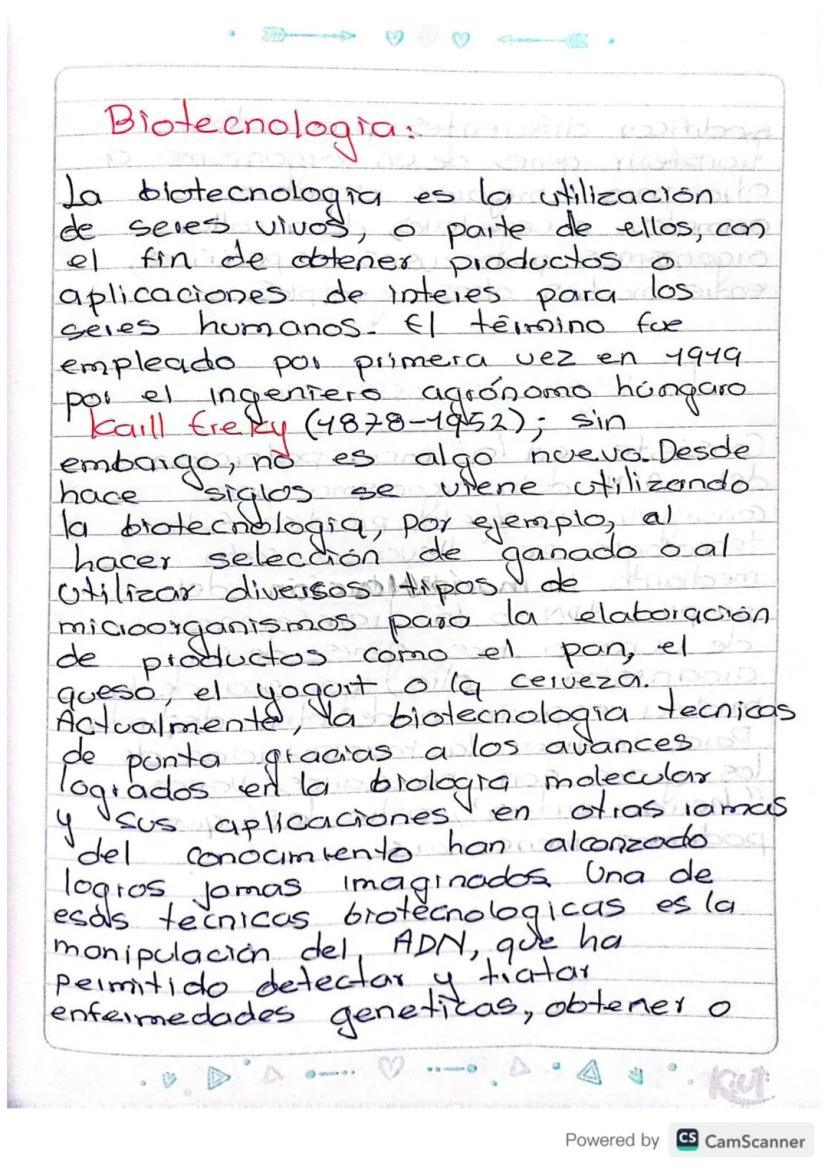 Biotecnología:
La biotecnología es la utilización
de seres vivos, o parte de ellos, con
el fin de obtener productos o
aplicaciones de interes para los
seres humanos. El término fue
empleado por primera vez en 1919
por el ingeniero agrónomo húngaro
Karll Ereky (1878-1952); sin
embargo, no es algo nuevo. Desde
hace siglos se viene utilizando
la biotecnología, por ejemplo, al
hacer selección de ganado o al
utilizar diversos tipos de
microorganismos para la elaboración
de productos como el pan, el
queso, el yogurt o la cerveza.
Actualmente, la biotecnologia tecnicas
de punta gracias a los avances
logrados en la biología molecular
y sus aplicaciones en otras ramas
del conocimiento han alcanzado
logros jamas imaginados. Una de
esas tecnicas biotecnologicas es la
manipulación del ADN, que ha
permitido detectar y tratar
enfermedades geneticas, obtener o
Kiut
Powered by CS CamScanner